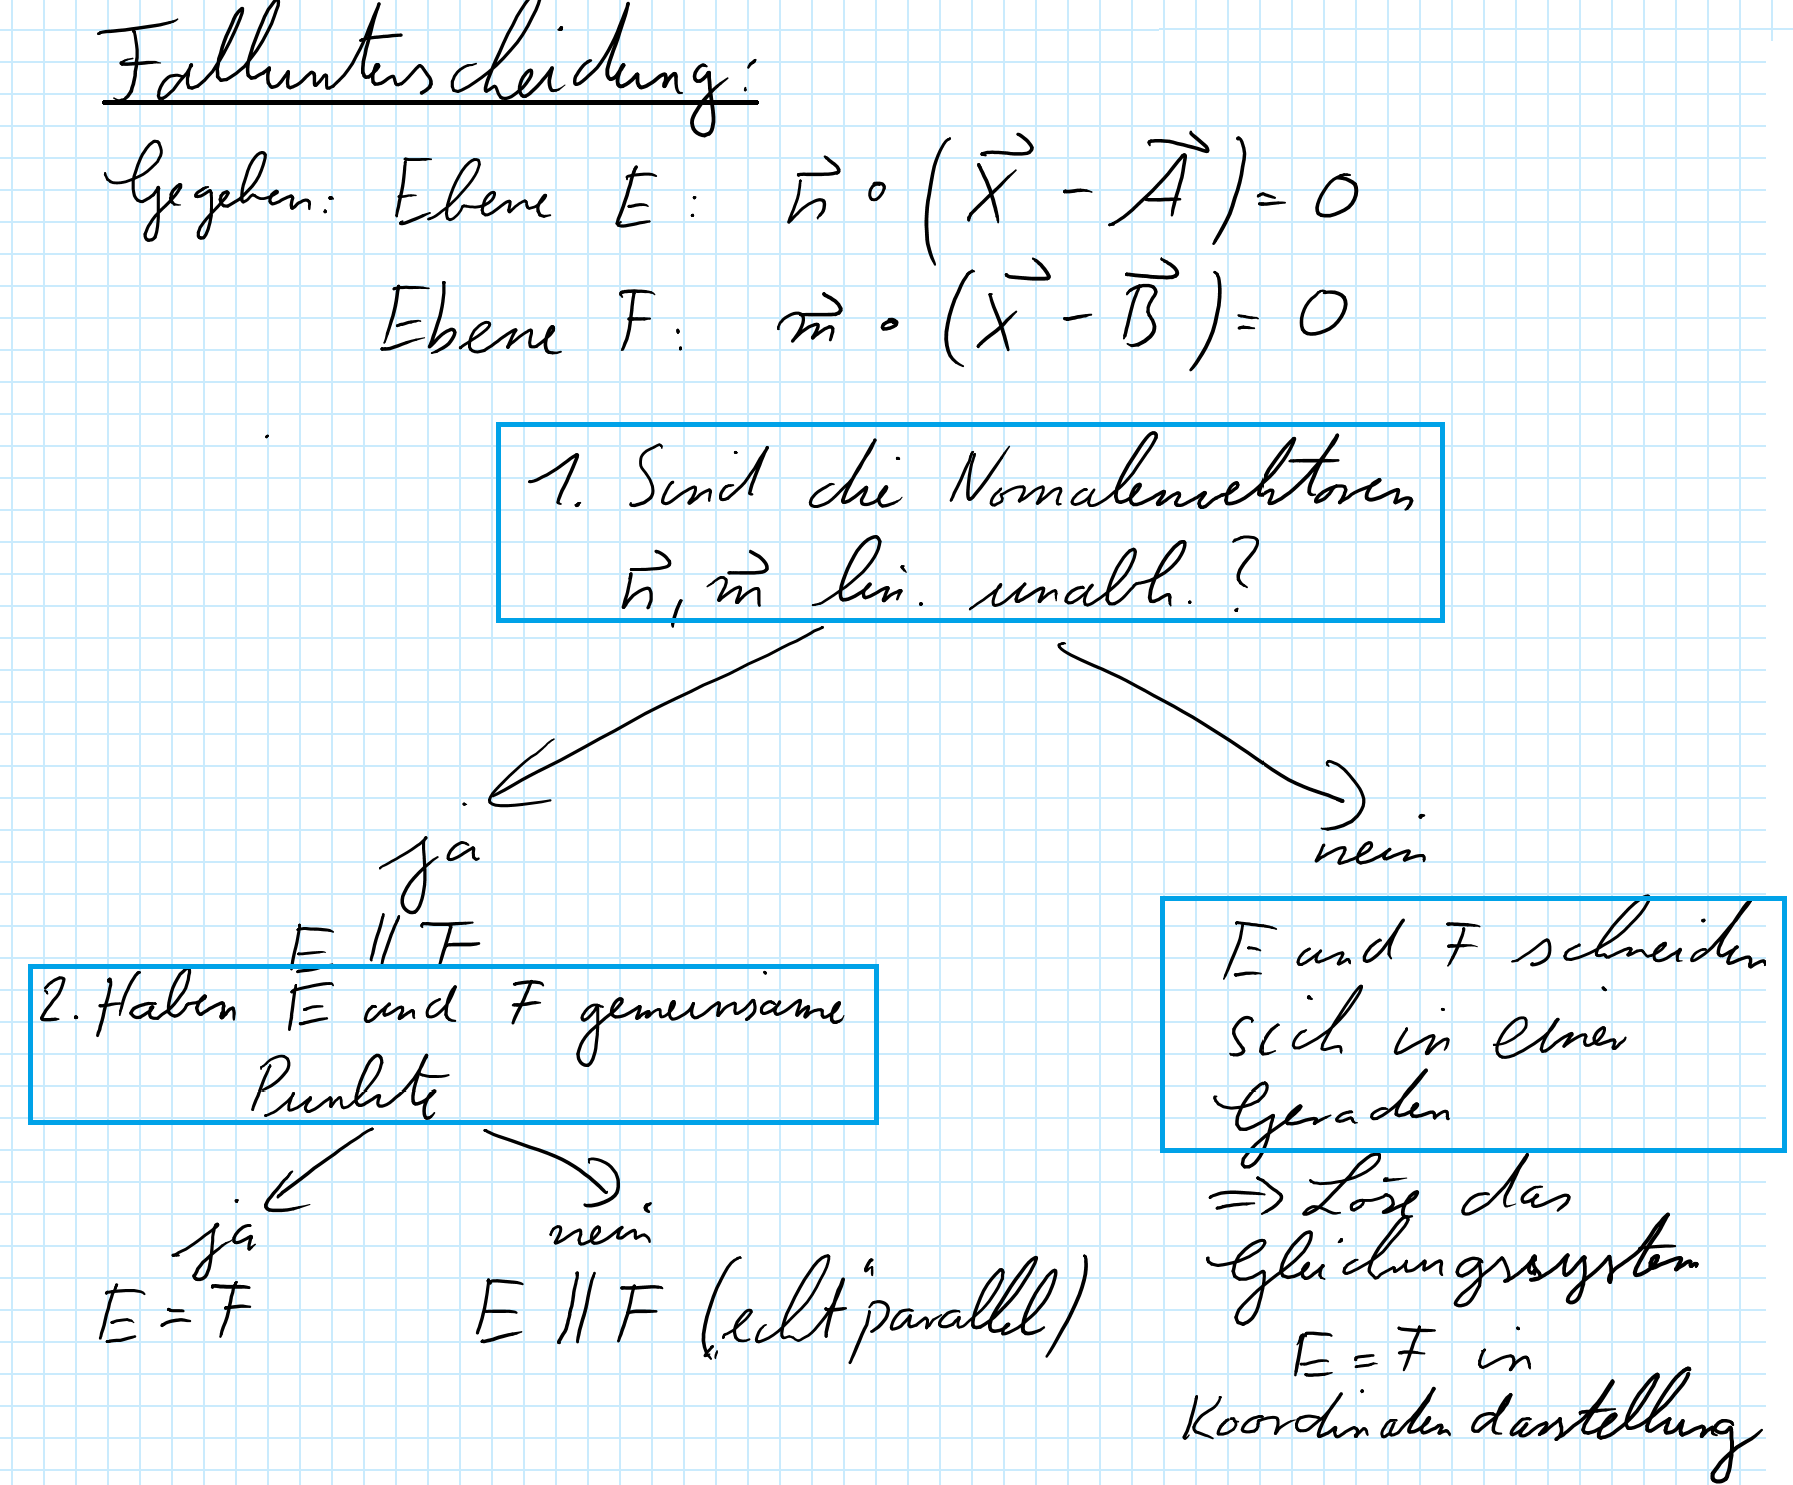 Fallunterscheidung:
Gegeben: Ebene E: n⃗ ∘ (X⃗ - A⃗) = 0
Ebene F: m⃗ ∘ (X⃗ - B⃗) = 0
1. Sind die Normalenvektoren
n⃗, m⃗ lin. unabh.?
ja
nein
E ∥ F
2. Haben E und F gemeinsame
Punkte
ja
nein
E = F
E ∥ F ("echt" parallel)
E und F schneiden
sich in einer
Geraden
⇒ Löse das
Gleichungssystem
E = F in
Koordinatendarstellung